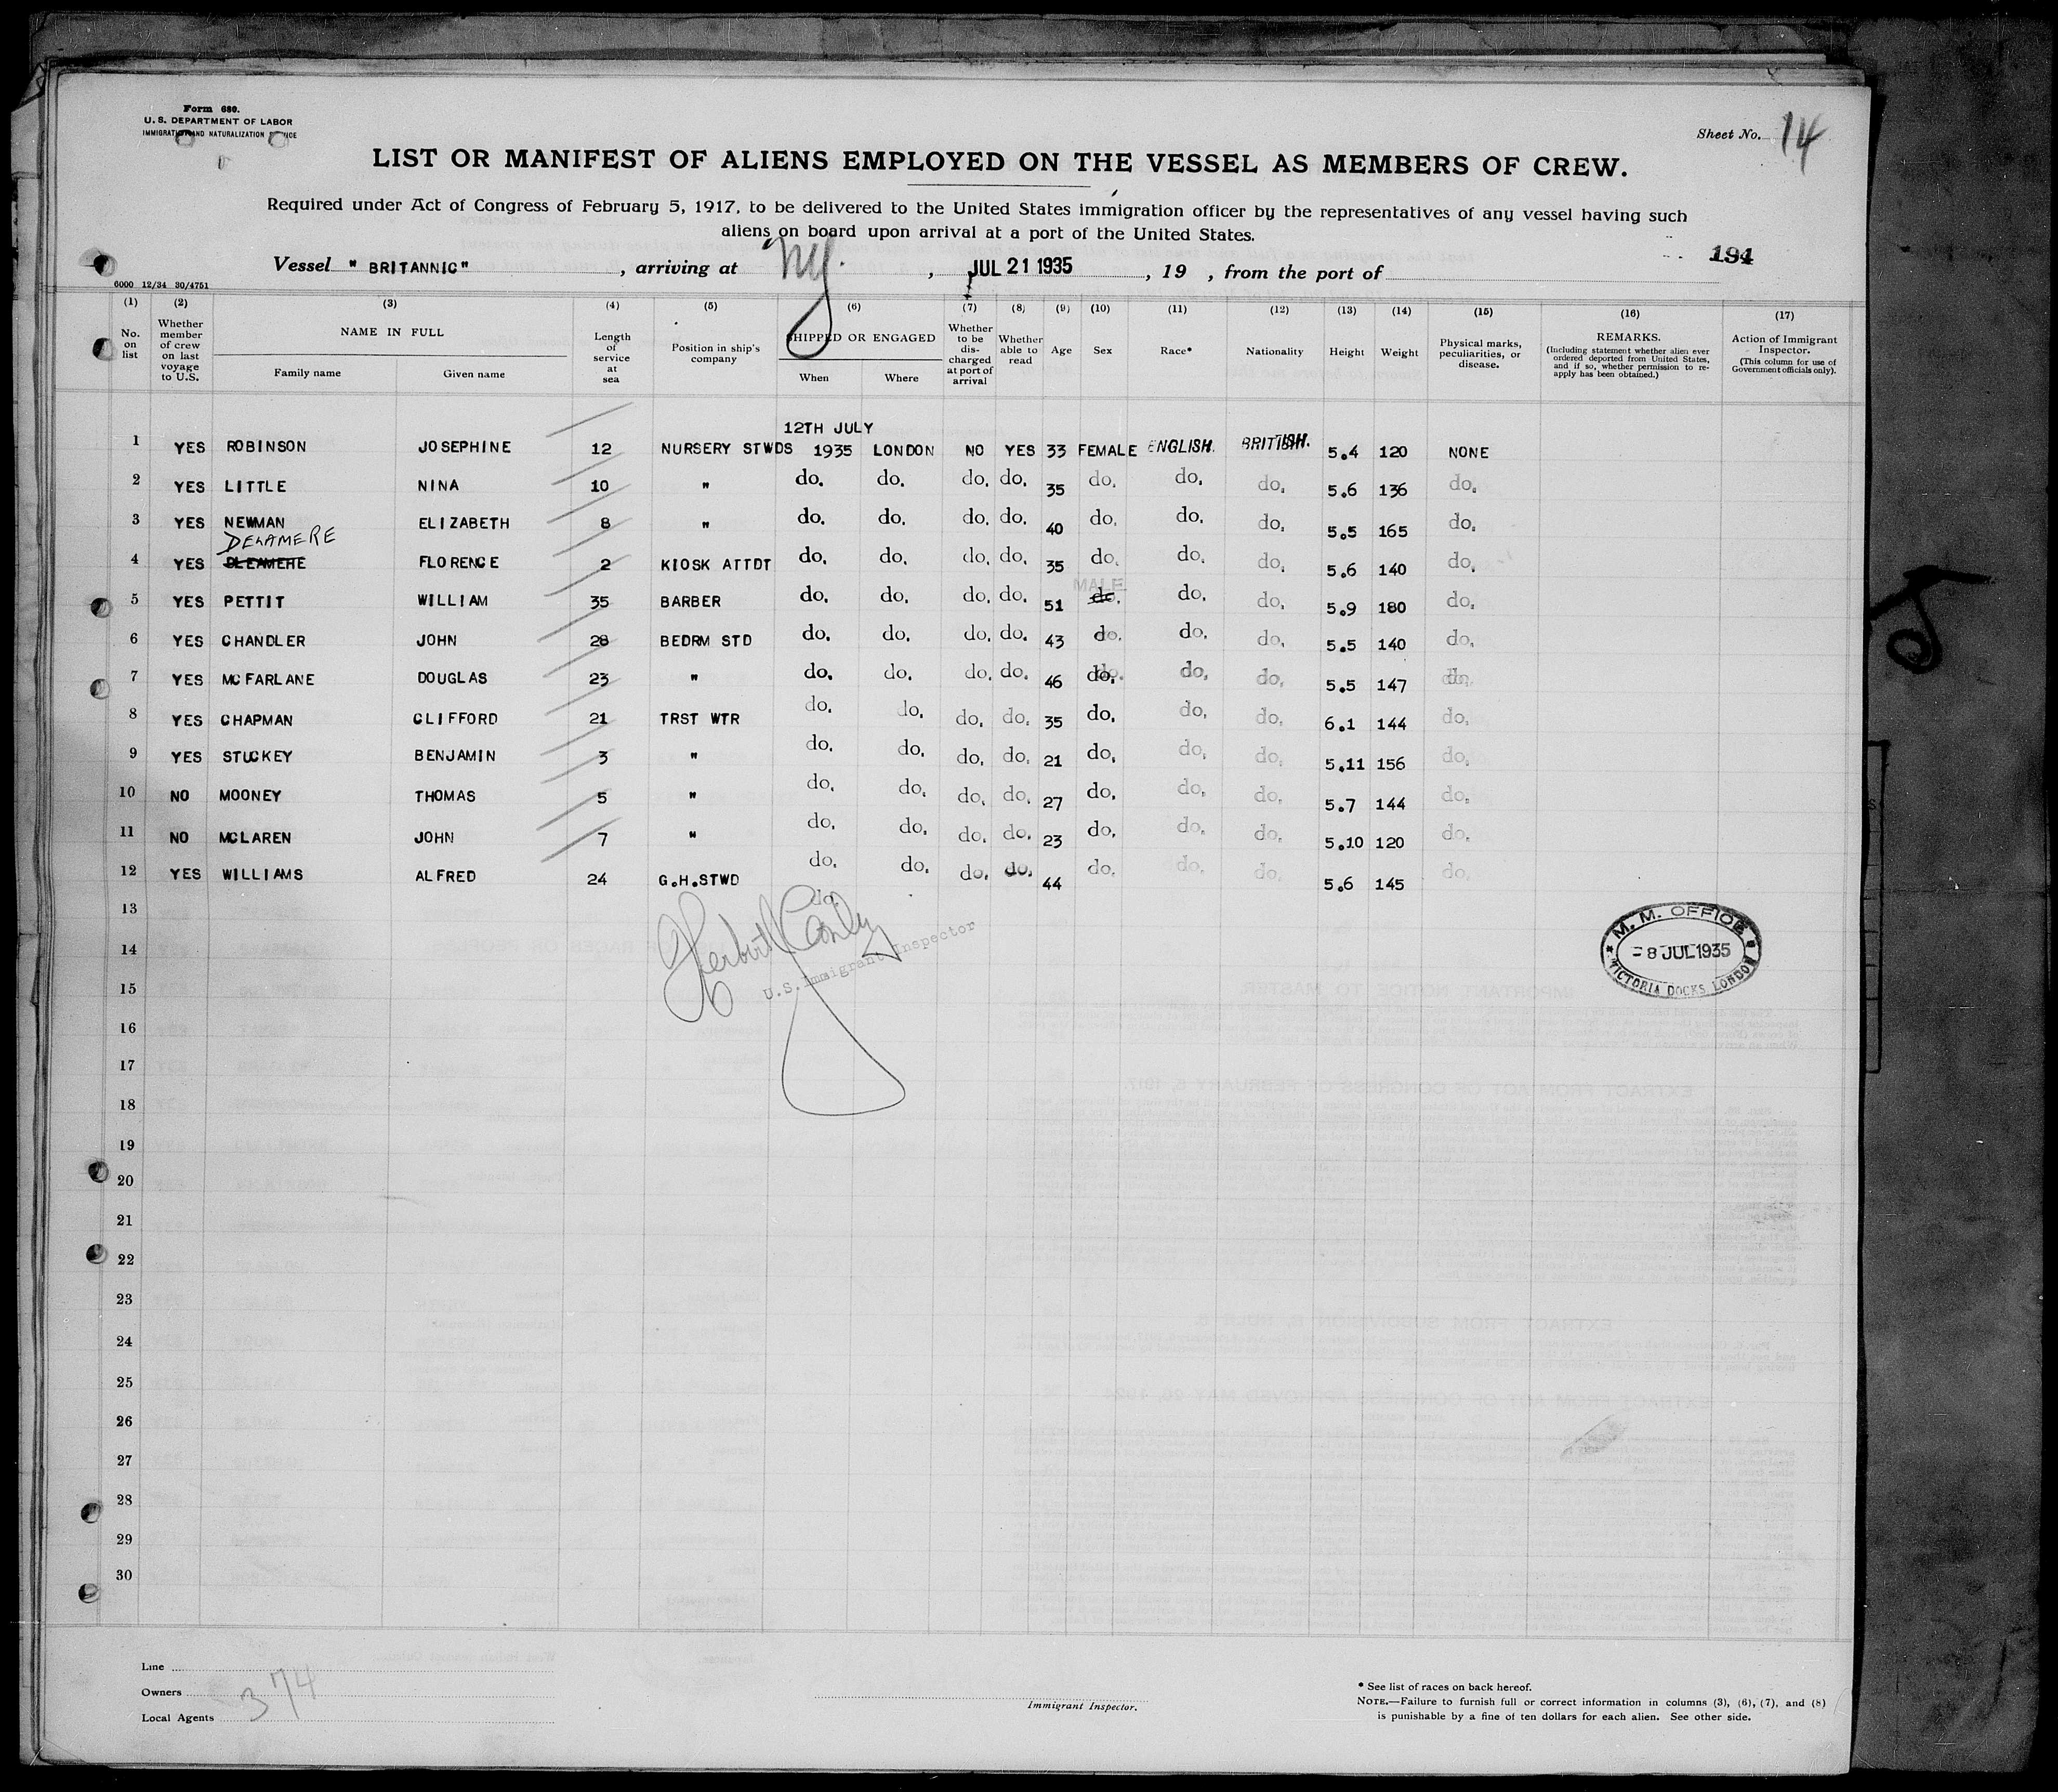 Form 680.
U. S. DEPARTMENT OF LABOR
IMMIGRATION AND NATURALIZATION SERVICE
Sheet No. 14
LIST OR MANIFEST OF ALIENS EMPLOYED ON THE VESSEL AS MEMBERS OF CREW.
Required under Act of Congress of February 5, 1917, to be delivered to the United States immigration officer by the representatives of any vessel having such
aliens on board upon arrival at a port of the United States.
194
Vessel " BRITANNIC" , arriving at NY. , JUL 21 1935 , 19 , from the port of
6000 12/34 30/4751
(1) (2) (3) (4) (5) (6) (7) (8) (9) (10) (11) (12) (13) (14) (15) (16) (17)
No. on list
Whether member of crew on last voyage to U.S.
NAME IN FULL
Family name Given name
Length of service at sea
Position in ship's company
SHIPPED OR ENGAGED
When Where
Whether to be dis-charged at port of arrival
Whether able to read
Age
Sex
Race*
Nationality
Height
Weight
Physical marks, peculiarities, or disease.
REMARKS.
(Including statement whether alien ever ordered deported from United States, and if so, whether permission to re-apply has been obtained.)
Action of Immigrant Inspector.
(This column for use of Government officials only).
12TH JULY
1 YES ROBINSON JOSEPHINE 12 NURSERY STWDS 1935 LONDON NO YES 33 FEMALE ENGLISH. BRITISH. 5.4 120 NONE
2 YES LITTLE NINA 10 " do. do. do. do. 35 do. do. do. 5.6 136 do.
3 YES NEWMAN ELIZABETH 8 " do. do. do. do. 40 do. do. do. 5.5 165 do.
DELAMERE
4 YES DLEAMERE FLORENCE 2 KIOSK ATTDT do. do. do. do. 35 do. do. do. 5.6 140 do.
MALE
5 YES PETTIT WILLIAM 35 BARBER do. do. do. do. 51 do. do. do. 5.9 180 do.
6 YES CHANDLER JOHN 28 BEDRM STD do. do. do. do. 43 do. do. do. 5.5 140 do.
7 YES MCFARLANE DOUGLAS 23 " do. do. do. do. 46 do. do. do. 5.5 147 do.
8 YES CHAPMAN CLIFFORD 21 TRST WTR do. do. do. do. 35 do. do. do. 6.1 144 do.
9 YES STUCKEY BENJAMIN 3 " do. do. do. do. 21 do. do. do. 5.11 156 do.
10 NO MOONEY THOMAS 5 " do. do. do. do. 27 do. do. do. 5.7 144 do.
11 NO MCLAREN JOHN 7 " do. do. do. do. 23 do. do. do. 5.10 120 do.
12 YES WILLIAMS ALFRED 24 G.H.STWD do. do. do. do. 44 do. do. do. 5.6 145 do.
13 do.
14
U.S. Immigrant Inspector
M. M. OFFICE
-8 JUL 1935
VICTORIA DOCKS, LONDON
15
16
17
18
19
20
21
22
23
24
25
26
27
28
29
30
Line
Owners
Local Agents
374
Immigrant Inspector.
* See list of races on back hereof.
NOTE.—Failure to furnish full or correct information in columns (3), (6), (7), and (8)
is punishable by a fine of ten dollars for each alien. See other side.